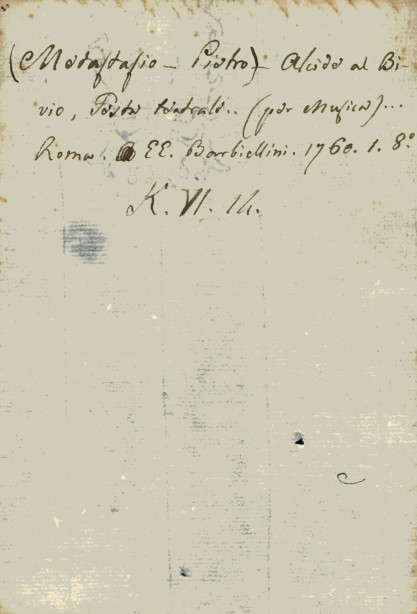 (Metastasio - Pietro) - Alcide al Bi-
vio, Festa teatrale.. (per Musica)...
Roma. EE. Barbiellini. 1760. 1. 8º
K. VI. 14.